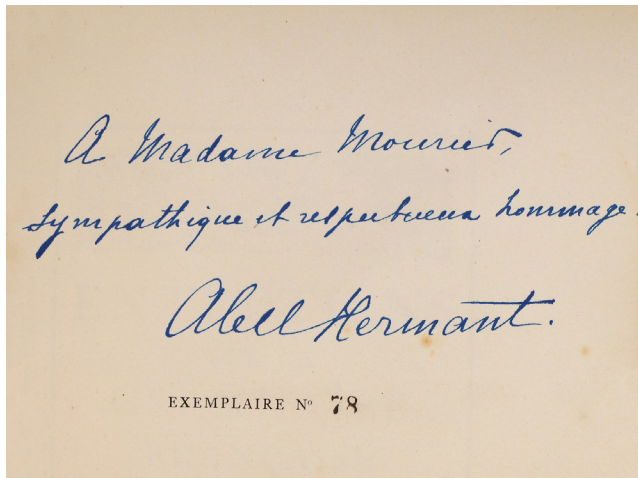 A Madame Mourier,
sympathique et respectueux hommage.
Abel Hermant.
EXEMPLAIRE Nº 78